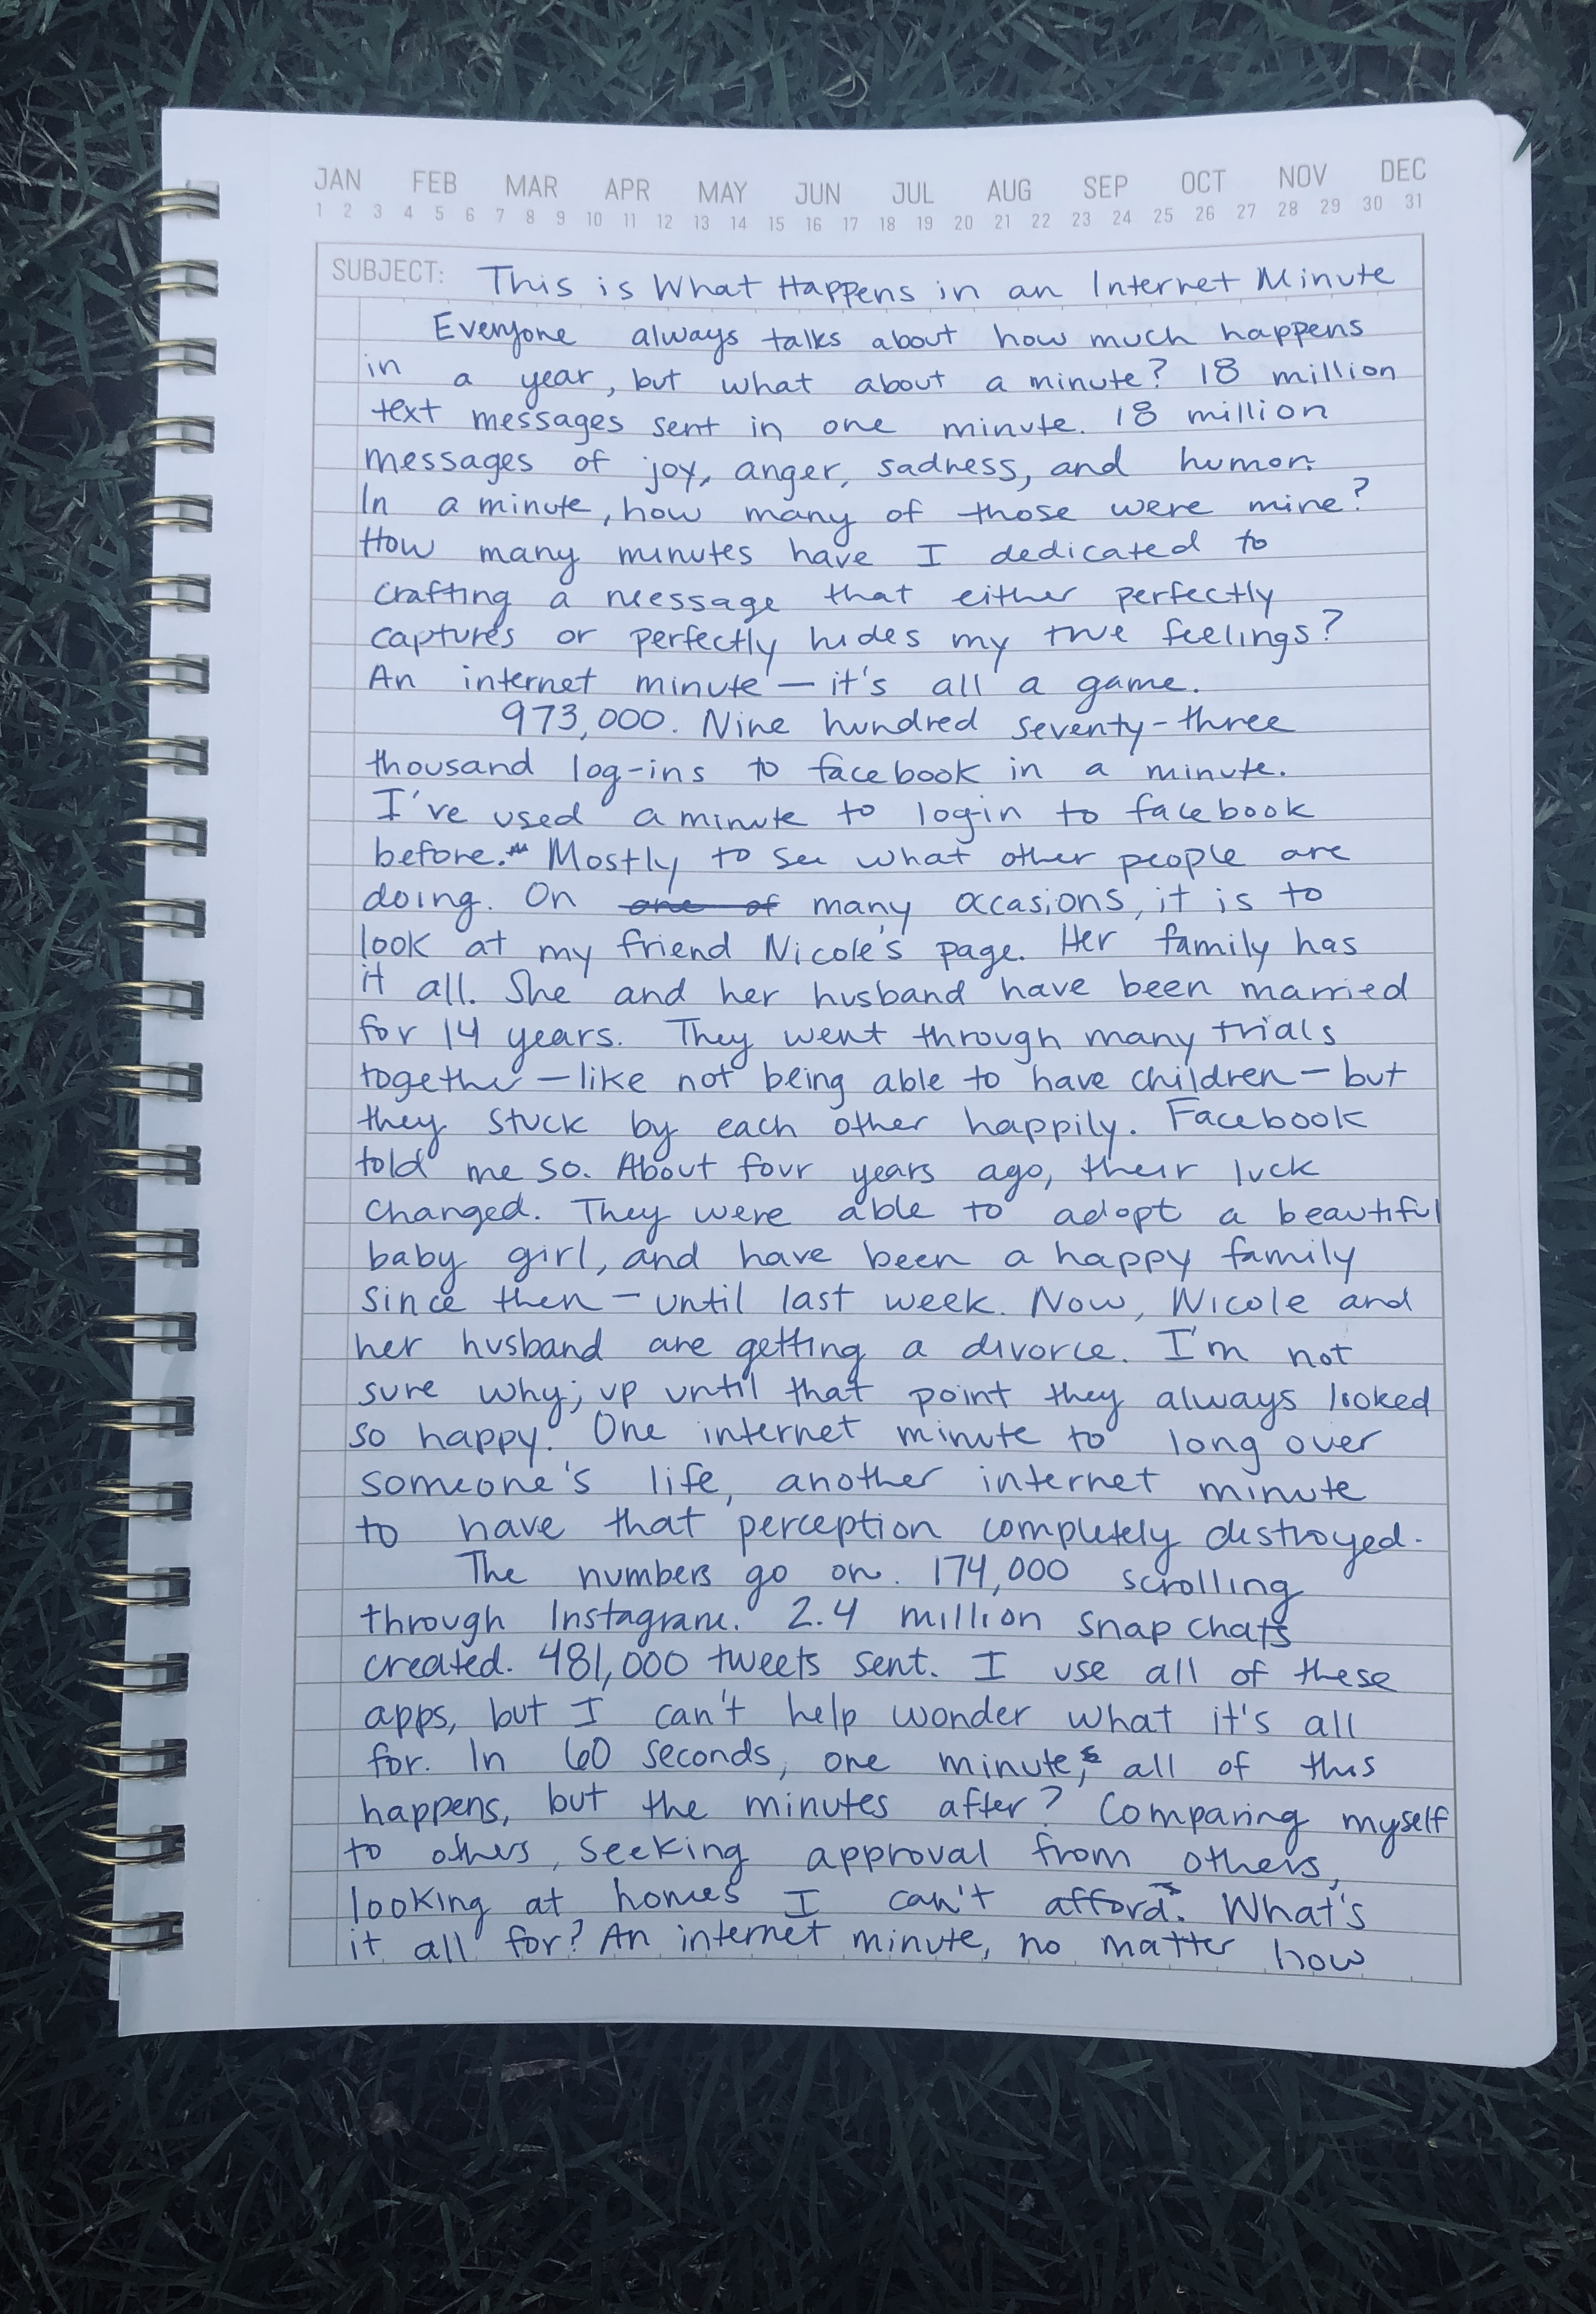 JAN FEB MAR APR MAY JUN JUL AUG SEP OCT NOV DEC
1 2 3 4 5 6 7 8 9 10 11 12 13 14 15 16 17 18 19 20 21 22 23 24 25 26 27 28 29 30 31
SUBJECT: This is What Happens in an Internet Minute
Everyone always talks about how much happens
in a year, but what about a minute? 18 million
text messages sent in one minute. 18 million
messages of joy, anger, sadness, and humor.
In a minute, how many of those were mine?
How many minutes have I dedicated to
crafting a message that either perfectly
captures or perfectly hides my true feelings?
An internet minute — it's all a game.
973,000. Nine hundred seventy-three
thousand log-ins to facebook in a minute.
I've used a minute to login to facebook
before. Mostly to see what other people are
doing. On one of many occasions, it is to
look at my friend Nicole's page. Her family has
it all. She and her husband have been married
for 14 years. They went through many trials
together — like not being able to have children — but
they stuck by each other happily. Facebook
told me so. About four years ago, their luck
changed. They were able to adopt a beautiful
baby girl, and have been a happy family
since then — until last week. Now, Nicole and
her husband are getting a divorce. I'm not
sure why; up until that point they always looked
so happy. One internet minute to long over
someone's life, another internet minute
to have that perception completely destroyed.
The numbers go on. 174,000 scrolling
through Instagram. 2.4 million snap chats
created. 481,000 tweets sent. I use all of these
apps, but I can't help wonder what it's all
for. In 60 seconds, one minute, all of this
happens, but the minutes after? Comparing myself
to others, seeking approval from others,
looking at homes I can't afford. What's
it all for? An internet minute, no matter how